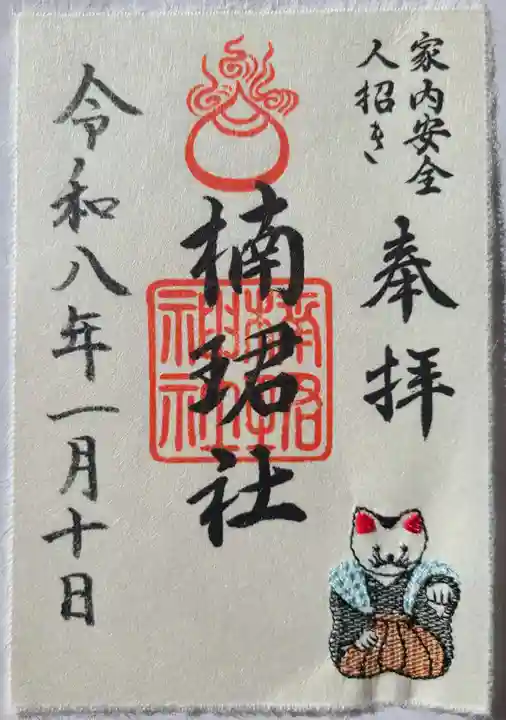 家内安全
人招き
奉拝
楠珺社
令和八年一月十日